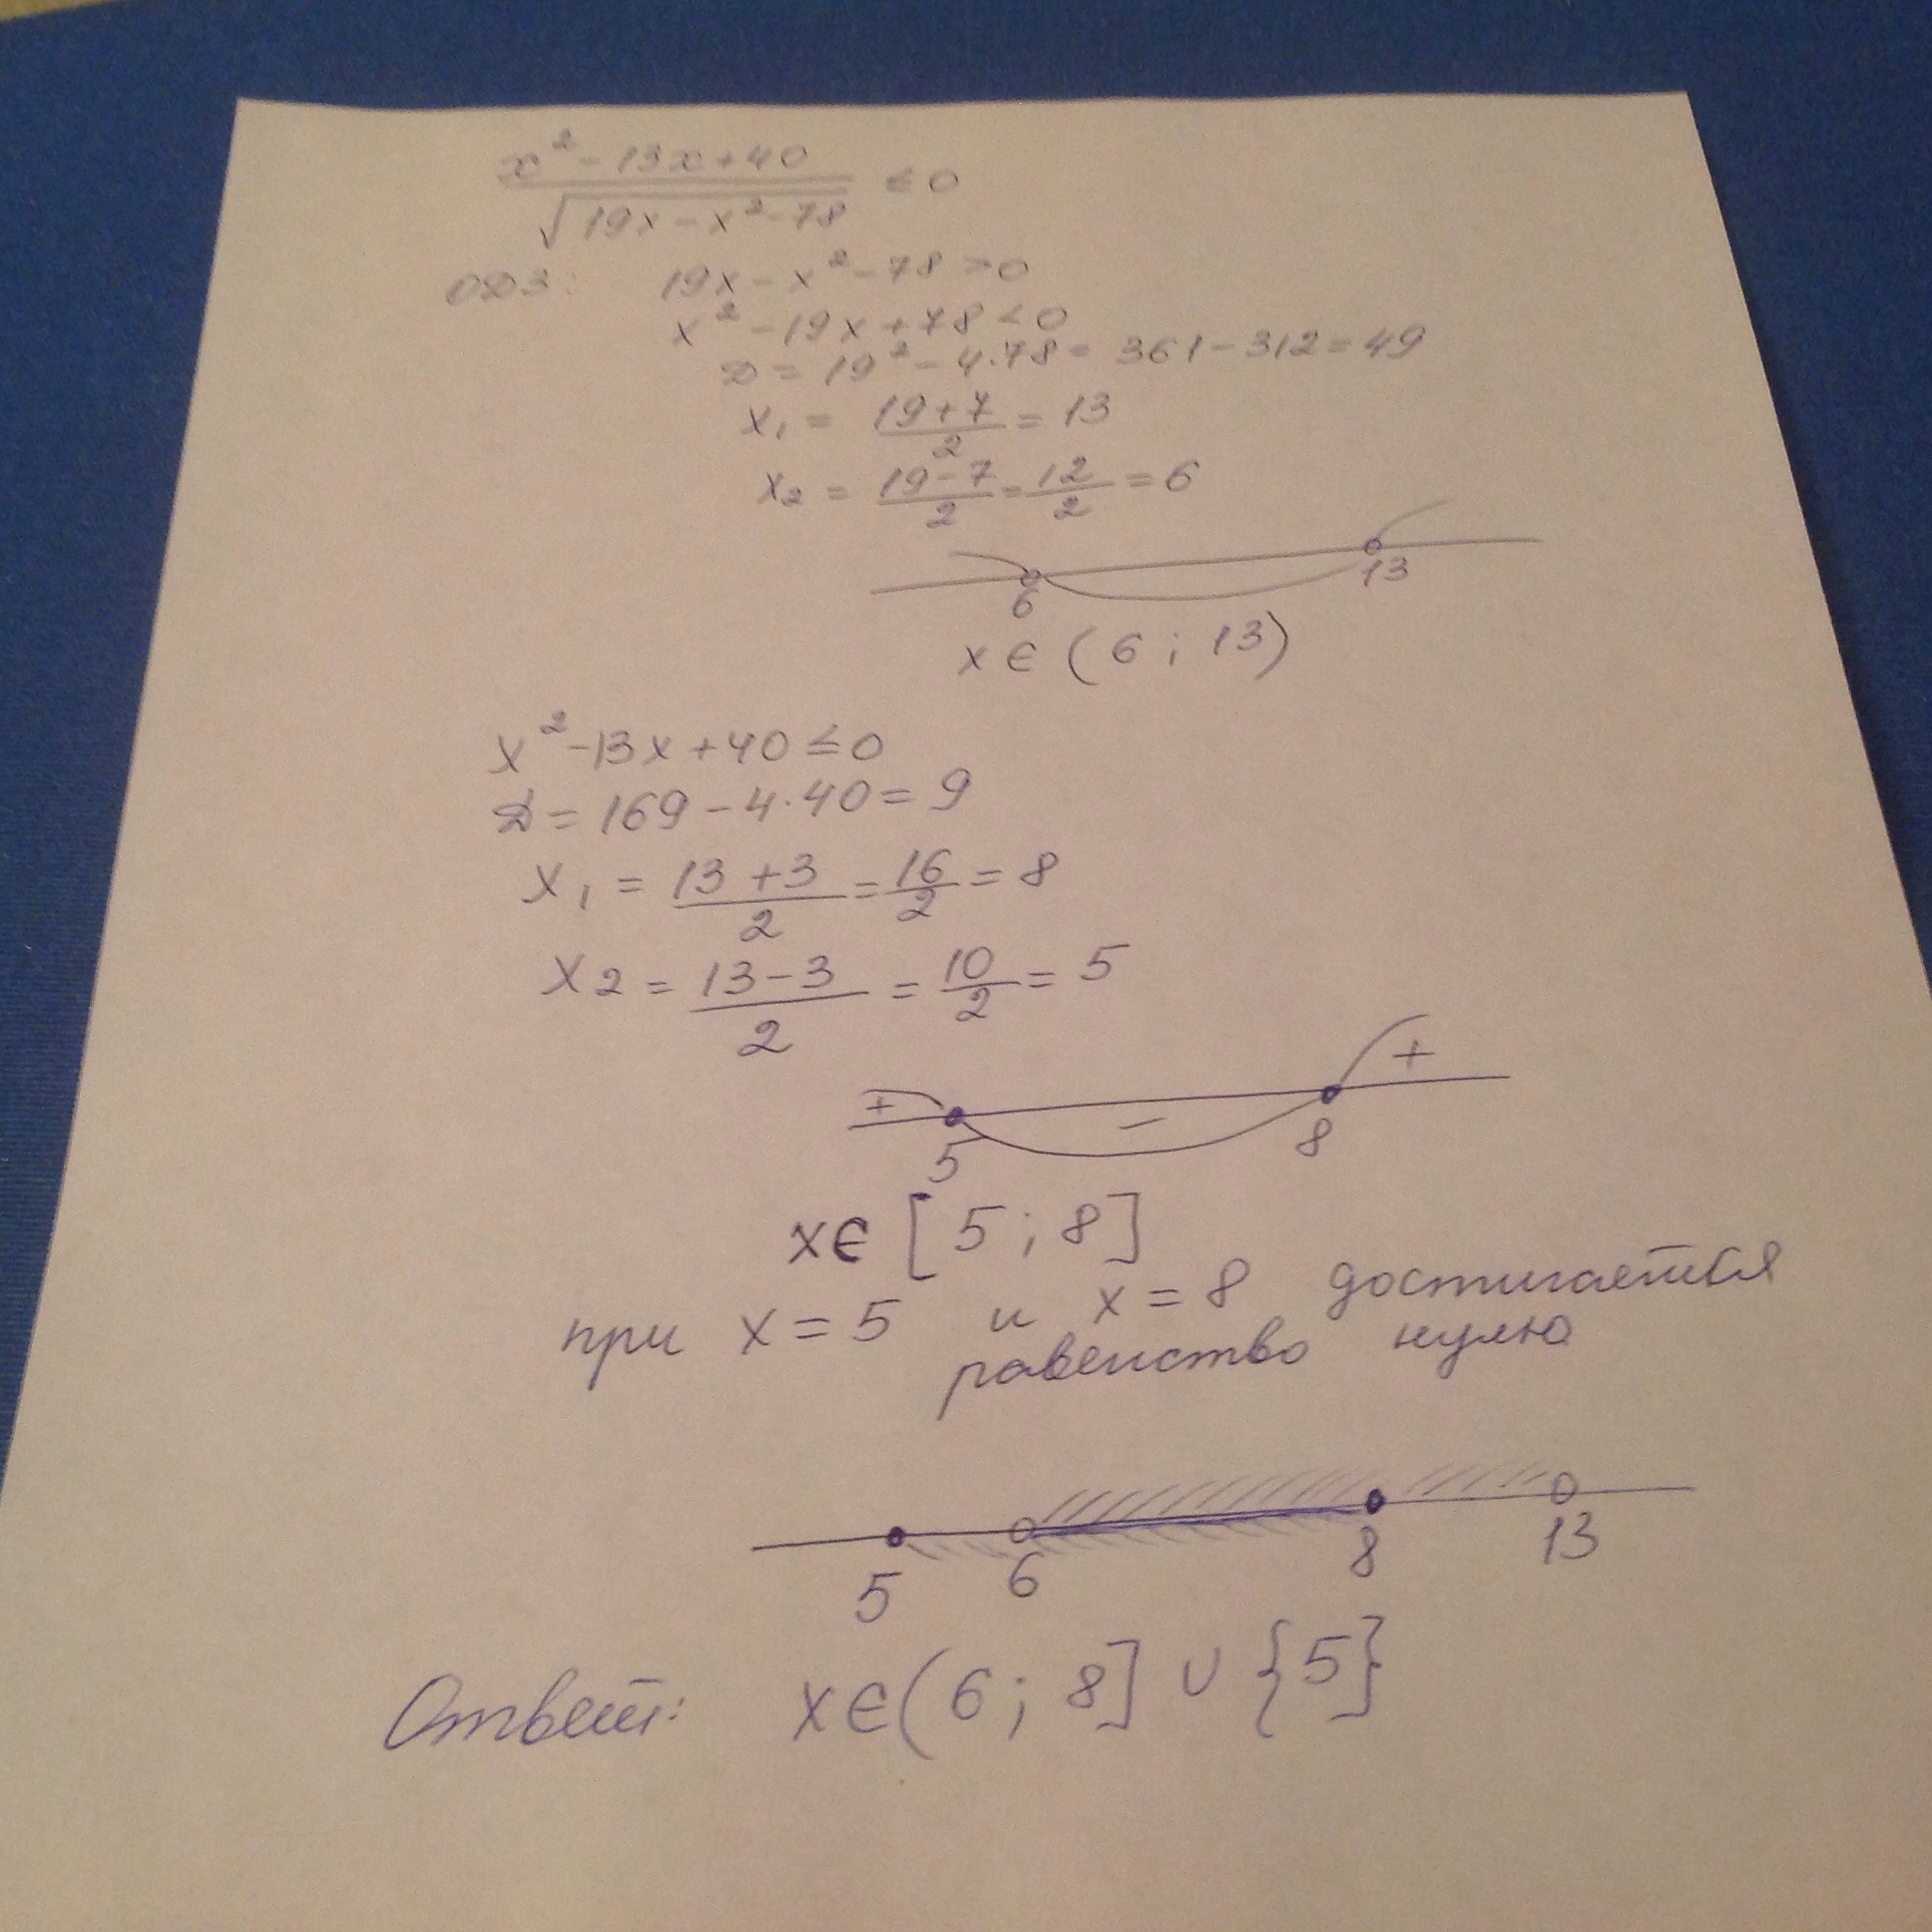 x² - 13x + 40
√19x - x² - 78 ≤ 0
ОДЗ: 19x - x² - 78 > 0
x² - 19x + 78 < 0
D = 19² - 4·78 = 361 - 312 = 49
x₁ = (19+7)/2 = 13
x₂ = (19-7)/2 = 12/2 = 6
6 13
x ∈ (6 ; 13)
x² - 13x + 40 ≤ 0
D = 169 - 4·40 = 9
x₁ = (13+3)/2 = 16/2 = 8
x₂ = (13-3)/2 = 10/2 = 5
+ - +
5 8
x ∈ [5 ; 8]
при x = 5 и x = 8 достигается
равенство нулю
5 6 8 13
Ответ: x ∈ (6 ; 8] ∪ {5}